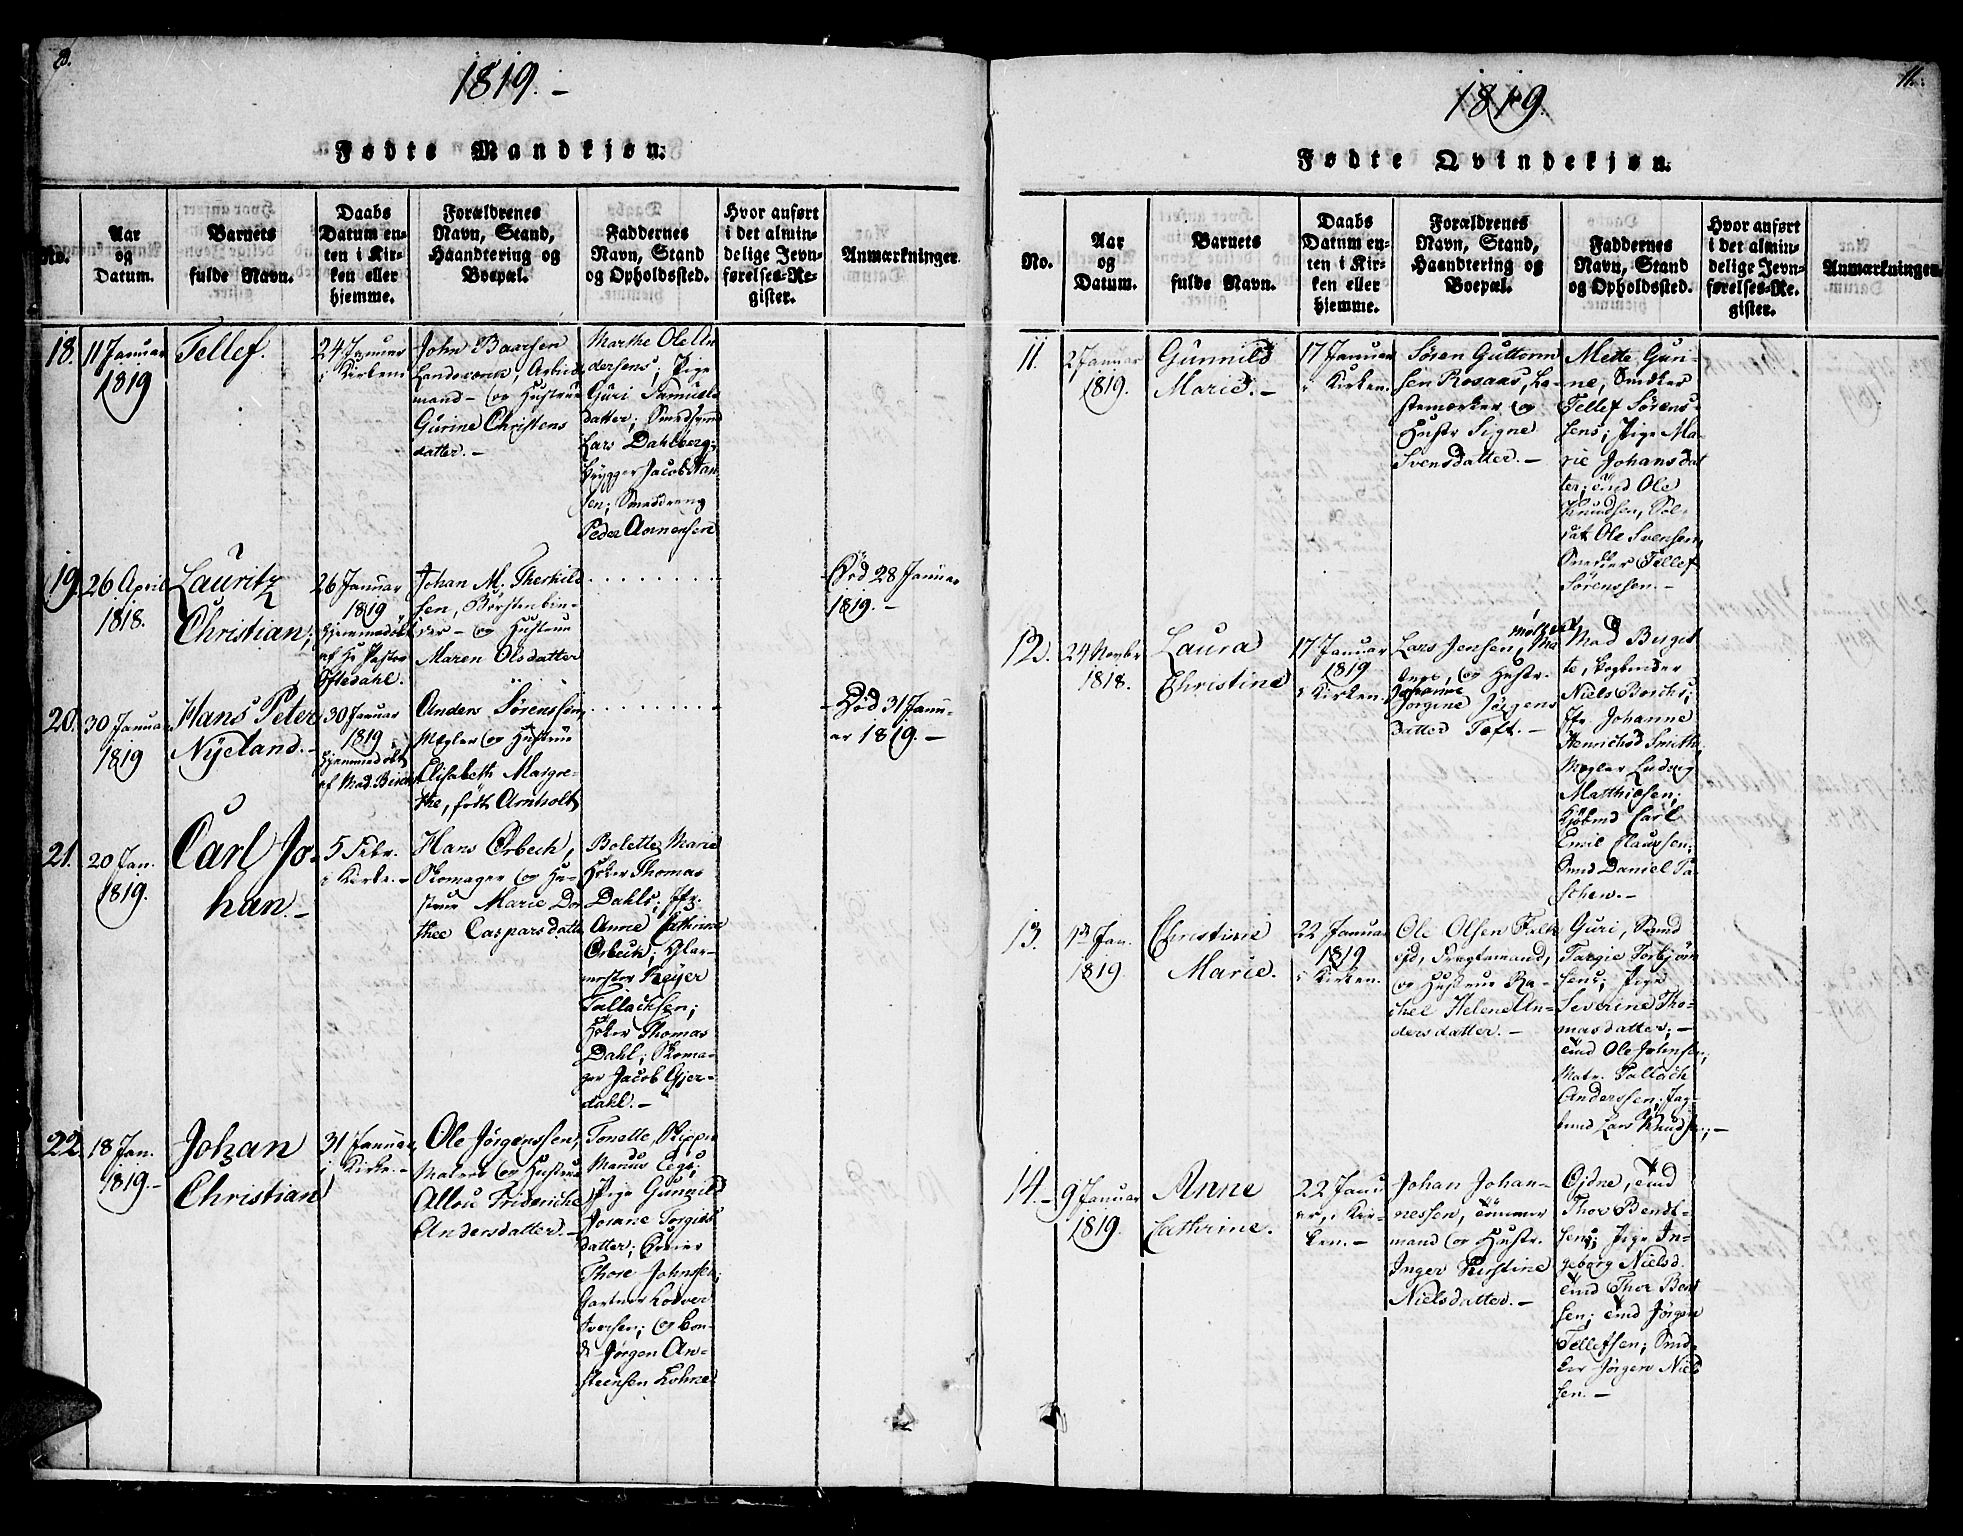 8.
1819. –
Fødte Mandkjøn.
No.
Aar
og
Datum.
Barnets
fulde Navn.
Daabs
Datum en-
ten i Kir-
ken eller
hjemme.
Forældrenes
Navn, Stand,
Haandtering og
Boepæl.
Faddernes
Navn, Stand
og Opholdssted.
Hvor anført
i det almin-
delige Jevn-
førelses-Re-
gister.
Anmærkninger.
18.
11 Januar
1819
Tellef.
24 Januar
i Kirken
John Baarsen
mand – og Hustrue
Gurine Christens
datter. –
Marthe Ole An
dersens; Pige
Guri Samuels
datter; Smedsvend
Lars Dahlberg;
Brygger Jacob Han
sen; Smeddreng
Peder Aanensen
19.
26 April
1818.
Lauritz
Christian;
26 Januar
1819
hjemmedøbt
af Hr Pastor
Oftedahl.
Johan M. Therkild
sen, Børstenbin-
der – og Hustrue
Maren Olsdatter
Død 28 Januar
1819. –
20.
30 Januar
1819
Hans Peter
Nyeland. –
30 Januar
1819
hjemmedøbt
af Mad. Birch
Anders Sørenssøn,
Mægler og Hustrue
Elisabeth Margre-
the, født Arnholt
Død 31 Janu-
ar 1819. –
21.
20 Jan.
1819.
Carl Jo-
han. –
5 Febr.
i Kirke. –
Hans Orbech,
Skomager og Hu-
strue Marie Dor
thee Caspersdatter
Bolette Marie
Høker Thomas
Dahls; Jfr.
Anne Cathrine
Orbech; Glar-
mester Reyer
Tallachsen;
Høker Thomas
Dahl; Skoma-
ger Jacob Gjer-
dahl. –
22.
18 Jan.
1819. –
Johan
Christian
31 Januar
i Kirke. –
Ole Jørgenssen,
Matros og Hustrue
Allou Frideriche
Andersdatter. –
Tonette, Skippr
Manus Legs;
Pige Gunvild
Josane Torgies
datter;
Thore Johnsen;
Gartner Lodver
Iversen; og Bon-
de Jørgen An-
steensen Lohne
11.
1819.
Fødte Qvindekjøn.
No.
Aar
og
Datum.
Barnets
fulde Navn.
Daabs
Datum en-
ten i Kir-
ken eller
hjemme.
Forældrenes
Navn, Stand,
Haandtering og
Boepæl.
Faddernes
Navn, Stand
og Opholdssted.
Hvor anført
i det almin-
delige Jevn-
førelses-Re-
gister.
Anmærkninger.
11.
2 Januar
1819.
Gunnild
Marie. –
17 Januar
i Kirken.
Søren Guttorm
sen Rosaas,
og
Hustr Signe
Svensdatter. –
Mette Gun-
ne, Snedker
Tellef Sørens-
sens; Pige Ma-
rie Johansdat
ter; Ole
Knudsen, Sol-
dat Ole Svensen,
Snedker Tellef
Sørenssen. –
12.
24 Novbr
1818.
Laura
Christine
17 Januar
1819
i Kirken.
Lars Jensen,
og Hustr.
Johanne
Jørgine Jørgens
datter Toft. –
Mad Berget
te, Bogbinder
Niels Borchs;
Jfr Johanne
Henrichsd Smith;
Mægler Ludvig
Matthiesen;
Kjøbmd Carl
Emil Claussen;
Smd Daniel Pa
schen. –
13.
1ste Jan.
1819.
Christine
Marie.
22 Januar
1819
i Kirken.
Ole Olsen Falk
ofd, Fragtemand,
og Hustrue Ra-
chel Helene An-
dersdatter. –
Guri, Smd
Targie Torbjørn
sens; Pige
Severine Tho-
masdatter; –
Ole Johnsen;
Matr. Tallach
Anderssen; Dag-
Lars Knudsen; –
14. –
9 Januar
1819.
Anne
Cathrine.
22 Janu
ar, i Kir-
ken. –
Johan Johan-
nessen, Tömmer
mand og Hustr.
Inger Kirstine
Nielsdatter. –
Thor Bendt-
sens; Pige In-
geborg Nielsd.
Thor Bent
sen; Jørgen
Tellefsen; Snid-
ker Jørgen Niel
sen. –